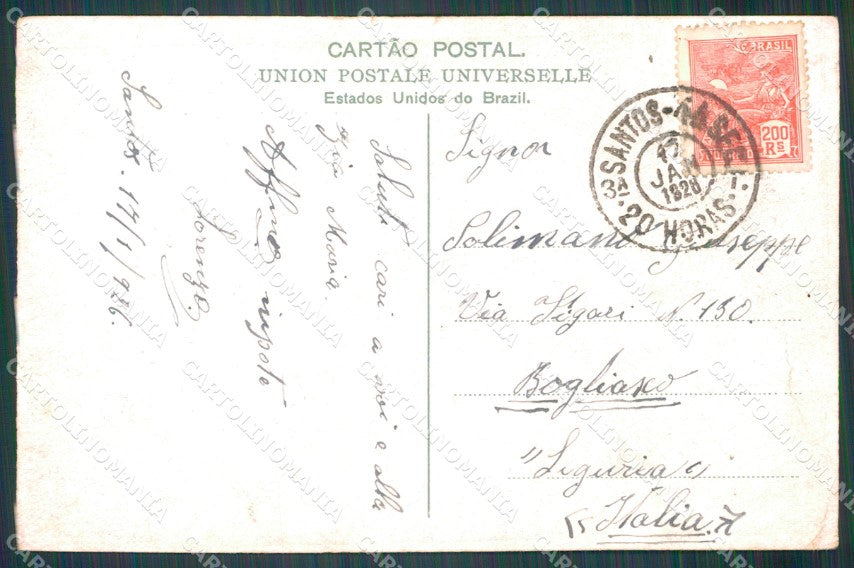 CARTÃO POSTAL.
UNION POSTALE UNIVERSELLE
Estados Unidos do Brazil.
BRASIL
200
Rs
SANTOS
17
JAN
1926
3ª
20 HORAS
Signor
Solimano Giuseppe
Via Sigari N. 130.
Bogliasco
"Liguria"
Italia
Saluti cari a voi e alla
zia Maria.
Affmo nipote
Lorenzo
Santos. 17/1/926.
CARTOLINOMANIA